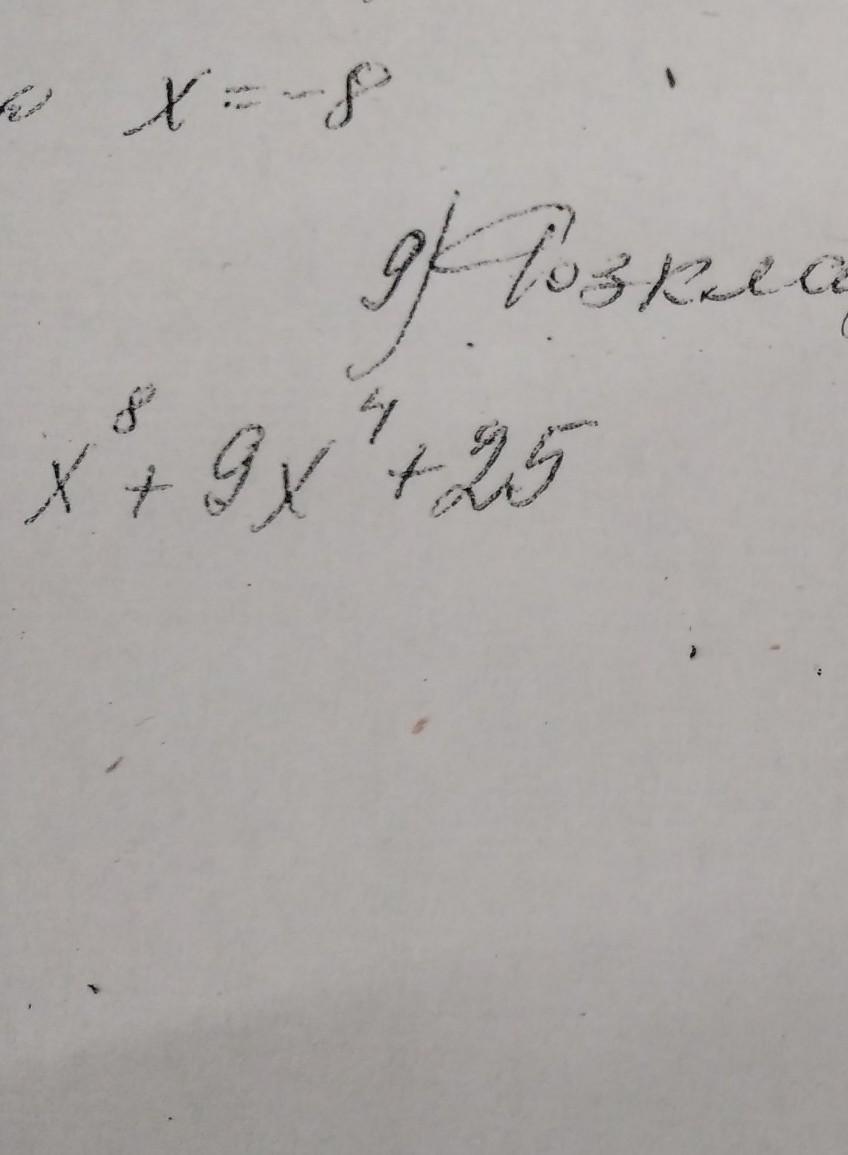 x = -8
9) Розкла
x⁸ + 9x⁴ + 25